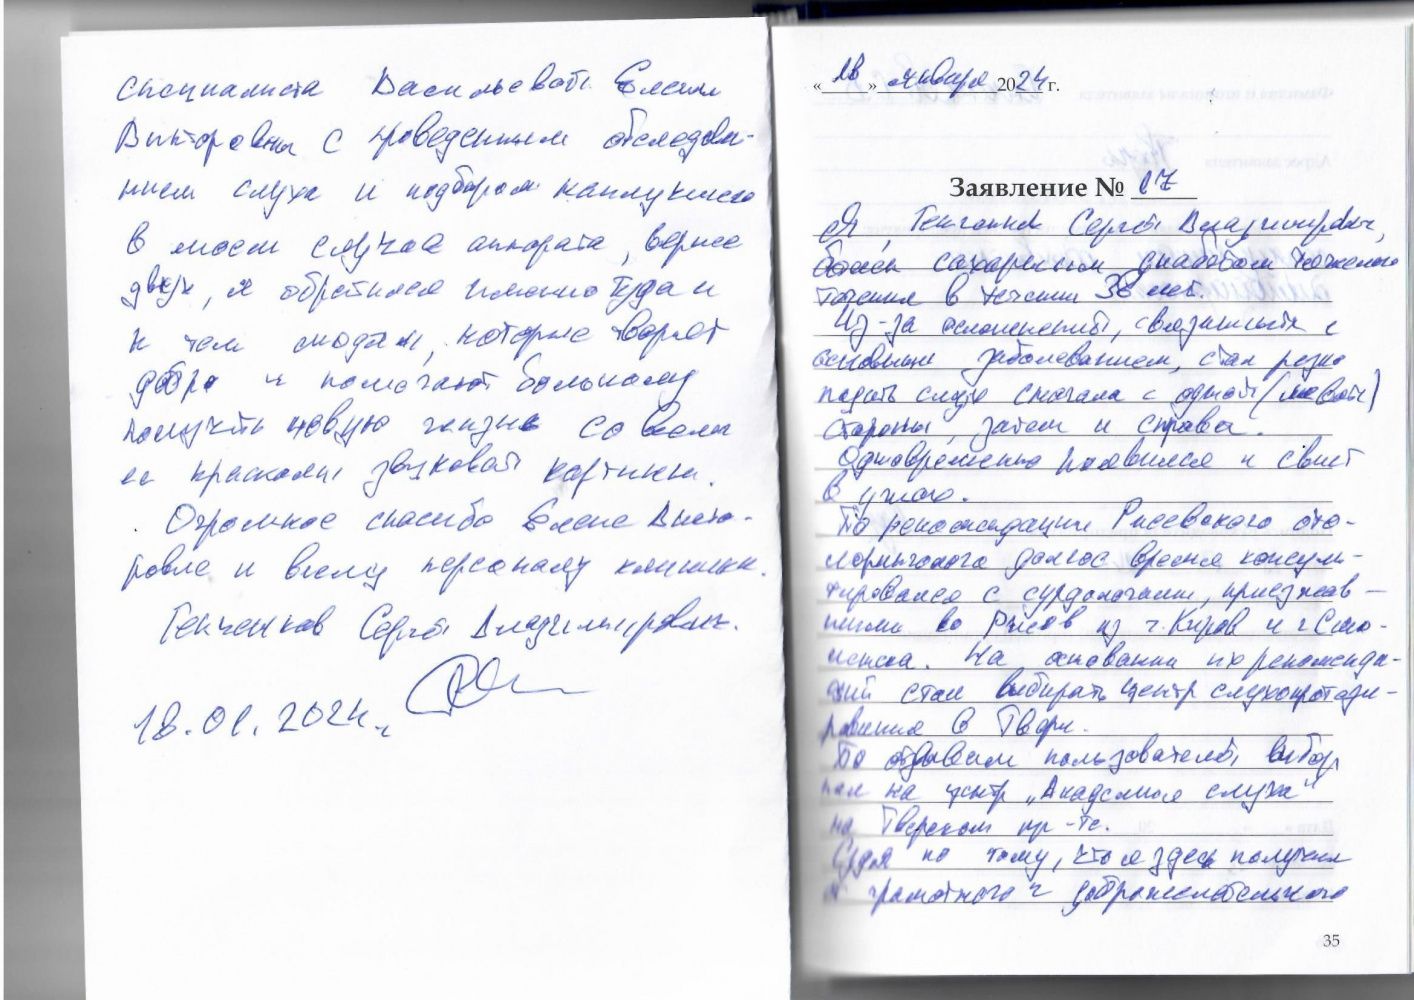 «18» января 2024 г.
Заявление № 17
Я, Генченков Сергей Владимирович,
болен сахарным диабетом тяжелого
течения в течении 38 лет.
Из-за осложнений, связанных с
основным заболеванием, стал резко
падать слух сначала с одной (левой)
стороны, затем и справа.
Одновременно появился и свист
в ушах.
По рекомендации Ржевского ото-
ларинголога долгое время консуль-
тировался с сурдологами, приезжав-
шими во Ржев из г. Киров и г. Смо-
ленска. На основании их рекоменда-
ций стал выбирать центр слухопротези-
рования в Твери.
По отзывам пользователей, выбор
пал на центр „Академия слуха"
на Тверском пр-те.
Судя по тому, что я здесь получил
от грамотного и доброжелательного
35
специалиста Васильевой Елены
Викторовны с проведенным обследова-
нием слуха и подбором наилучшего
в моем случае аппарата, вернее
двух, я обратился именно туда и
к тем людям, которые творят
добро и помогают больному
получить новую жизнь со всеми
ее красками звуковой картины.
Огромное спасибо Елене Викто-
ровне и всему персоналу клиники.
Генченков Сергей Владимирович.
18.01.2024 г.